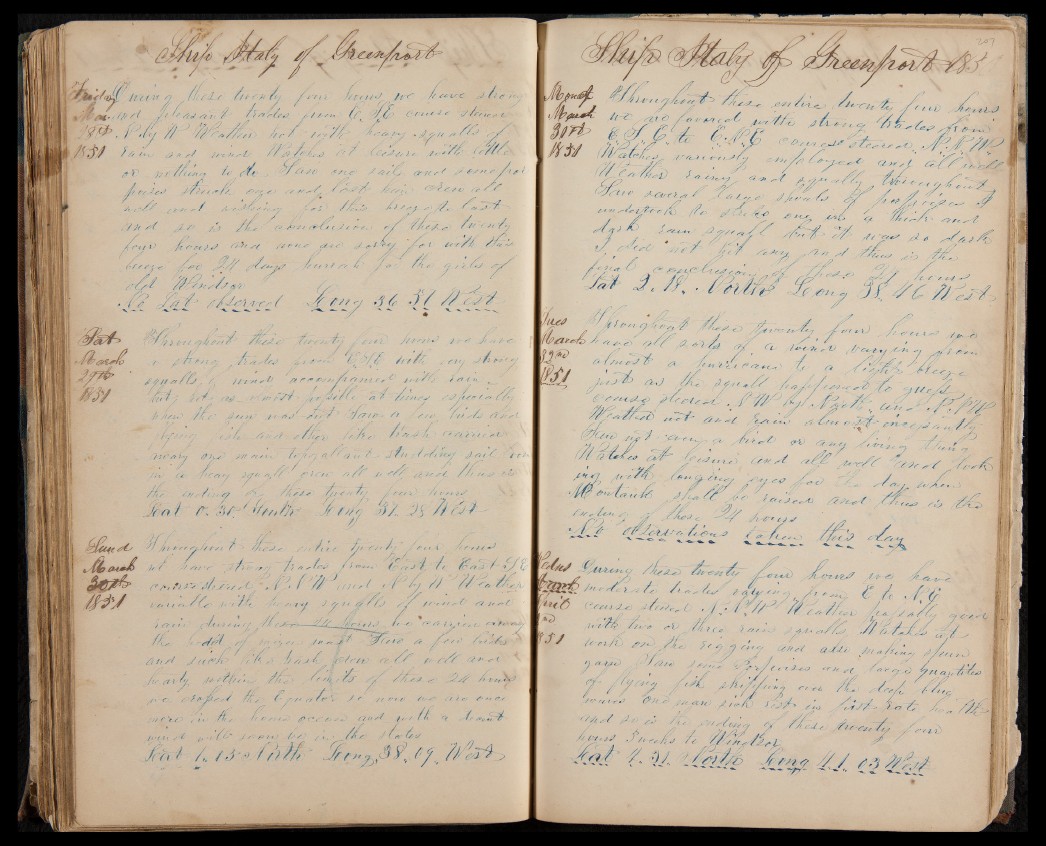 Ship Italy of Greenport
Friday
March
28th
1851
During these twenty four hours we have strong
and pleasant trades from E.S.E course steered
N. by W Weather hot with heavy squalls of
rain and wind Watches at leisure with little
or nothing to do. Saw one sail and some por
poises struck one and lost him crew all
well and wishing for this breeze to last
and so is the conclusion of these twenty
four hours and none are sorry for with this
breeze for 24 days hurrah for the girls of
old Windsor
No Lat observed Long 36 51 West
Sat
March
29th
1851
Throughout these twenty four hours we have
a strong trades from E.S.E with very strong
squalls of wind accompanied with rain
but hot as most possible at times especially
when the sun was out Saw a few birds and
flying fish and other like trash carried
away one main topgallant studding sail
in a heavy squall crew all well and thus is
the ending of these twenty four hours
Lat 0. 30 South Long 37. 28 West
Sund
March
30th
1851
Throughout these entire twenty four hours
we have strong trades from East to East S E
course steered N. N W and N by W Weather
variable with heavy squalls of wind and
rain during these 24 hours we carried away
the Saw a few birds
and such like trash crew all well and
hearty within the limits of these 24 hours
we crossed the Equator so now we are once
more in the home ocean and with a
wind will soon be in the states
Lat 1. 13 North Long 38. 09. West
Ship Italy of Greenport 185
Mond
March
31st
1851
Throughout these entire twenty four hours
we are favored with strong trades from
E.S.E to E.N.E course steered N.N.W.
Watches variously employed and all well
Weather rainy and squally throughout
Saw several large shoals of porpoises I
undertook to strike one in a thick and
dark rain squall but it was so dark
I did not get any and thus is the
final conclusion of these 24 hours
Lat 2. 18. North Long 38. 46 West
Tues
March
32nd
1851
Throughout these twenty four hours we
have all sorts of a wind varying from
almost a hurricane to a light breeze
just as the squall happened to
course steered N W by North and N.N.W
Weather wet and rain almost incessantly
Saw not even a bird or any living thing
Watches at leisure and all well and look
ing with longing eyes for the day when
Montauk shall be raised and thus is the
ending of these 24 hours
No observations taken this day
Wednes
April
2nd
1851
During these twenty four hours we have
moderate trades ranging from E to N.E
course steered N. N. W Weather
with two or three rain squalls, Watches at
work on the rigging and also making spun
yarn Saw some Porpoises and large quantities
of flying fish skipping over the deep blue
waves One man sick rest in first rate health
and so is the ending of these twenty four
hours 3 weeks to Windsor
Lat 4. 31. North Long 41. 03 West